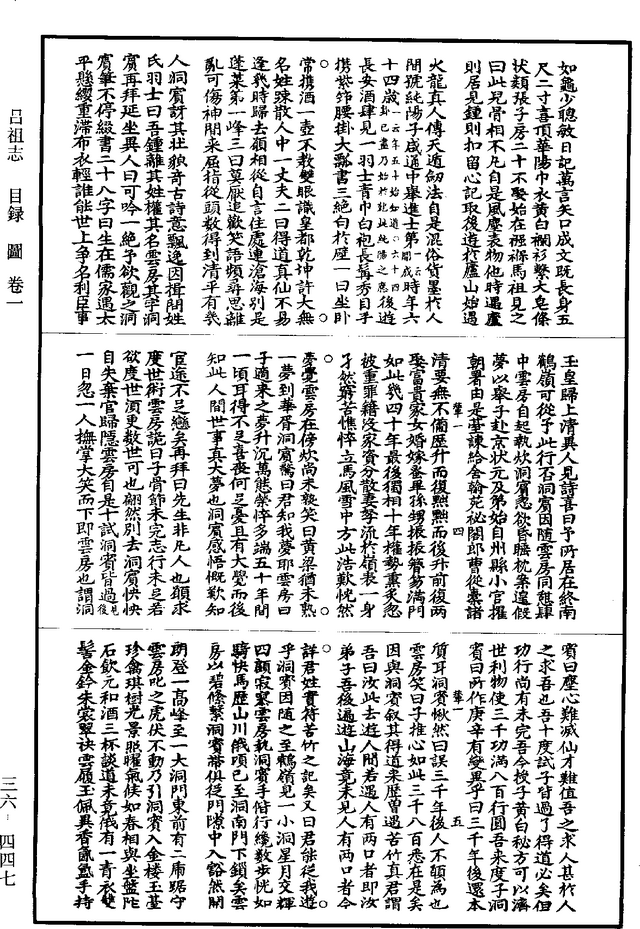 如龜少聰敏日記萬言矢口成文既長身五
尺二寸喜頂華陽巾衣黃白襴衫繫大皂絛
狀類張子房二十不娶始在襁褓馬祖見之
曰此兒骨相不凡自是風塵表物他時遇廬
則居見鍾則扣留心記取後遊於廬山始遇
火龍真人傳天遁劒法自是混俗貨墨於人
間號純陽子咸通中舉進士第時年六
十四歲後遊
長安酒肆見一羽士青巾白袍長髯秀目手
携紫筇腰掛大瓢書三絕句於壁一曰坐卧
常携酒一壺不教雙眼識皇都乾坤許大無
名姓踈散人中一丈夫二曰得道真仙不易
逢幾時歸去願相從自言住處連滄海別是
蓬萊第一峰三曰莫厭追歡笑語頻尋思離
亂可傷神閒來屈指從頭數得到清平有幾
人洞賓訝其狀貌奇古詩意飄逸因揖問姓
氏羽士曰吾鍾離其姓權其名雲房其字洞
賓再拜延坐異人曰可吟一絕予欲觀之洞
賓筆不停綴書二十八字曰生在儒家遇太
平懸纓重滯布衣輕誰能世上爭名利臣事
玉皇歸上清異人見詩喜曰予所居在終南
鶴嶺可從予此行否洞賓因隨雲房同憇肆
中雲房自起執炊洞賓忽欲昏睡枕案遑假
夢以舉子赴京狀元及第始自州縣小官擢
朝署由是臺諫給舍翰苑祕閣郎曹從橐諸
清要無不備歷升而復黜黜而復升前後兩
娶富貴家女婚嫁蚤畢孫甥振振簪笏滿門
如此幾四十年最後獨相十年權勢薰炙忽
被重罪籍沒家資分散妻孥流於嶺表一身
孑然窮苦憔悴立馬風雪中方此浩歎恍然
夢覺雲房在傍炊尚未熟笑曰黃梁猶未熟
一夢到華胥洞賓驚曰君知我夢耶雲房曰
子適來之夢升沉萬態榮悴多端五十年間
一頃耳得不足喜喪何足憂且有大覺而後
知此人間世事真大夢也洞賓感悟慨歎知
宦途不足戀矣再拜曰先生非凡人也願求
度世術雲房詭曰子骨節未完志行未足若
欲度世須更數世可也翩然別去洞賓怏怏
自失棄官歸隱雲房自是十試洞賓皆過
一日忽一人撫掌大笑而下即雲房也謂洞
賓曰塵心難滅仙才難值吾之求人甚於人
之求吾也吾十度試子皆過了得道必矣但
功行尚有未完吾今授子黃白秘方可以濟
世利物使三千功滿八百行圓吾來度子洞
賓曰所作庚辛有變異乎曰三千年後還本
質耳洞賓愀然曰誤三千年後人不願為也
雲房笑曰子推心如此三千八百悉在是矣
因與洞賓叙其得道來歷曽遇苦竹真君謂
吾曰汝此去遊人間若遇人有兩口者即汝
弟子吾後遍遊山海竟未見人有兩口者今
詳君姓實符苦竹之記矣又曰君能從我遊
乎洞賓因隨之至鶴嶺見一小洞星月交輝
四顧寂寥雲房執洞賓手偕行纔數步恍如
騎快馬歷山川俄頃已至洞南門下鎖矣雲
房以碧絛繫洞賓帶俱從門隙中入豁然開
朗登一高峰至一大洞門東前有二虎踞守
雲房叱之虎伏不動乃引洞賓入金樓玉臺
珍禽琪樹光景照曜氣候如春相與坐盤陀
石飲元和酒三杯談道未竟俄有一青衣雙
髻金鈴朱裳翠袂雲履玉佩異香氤氳手持
輩一
四
輩一
五
呂祖志 目録 圖 卷一
三六-四四七